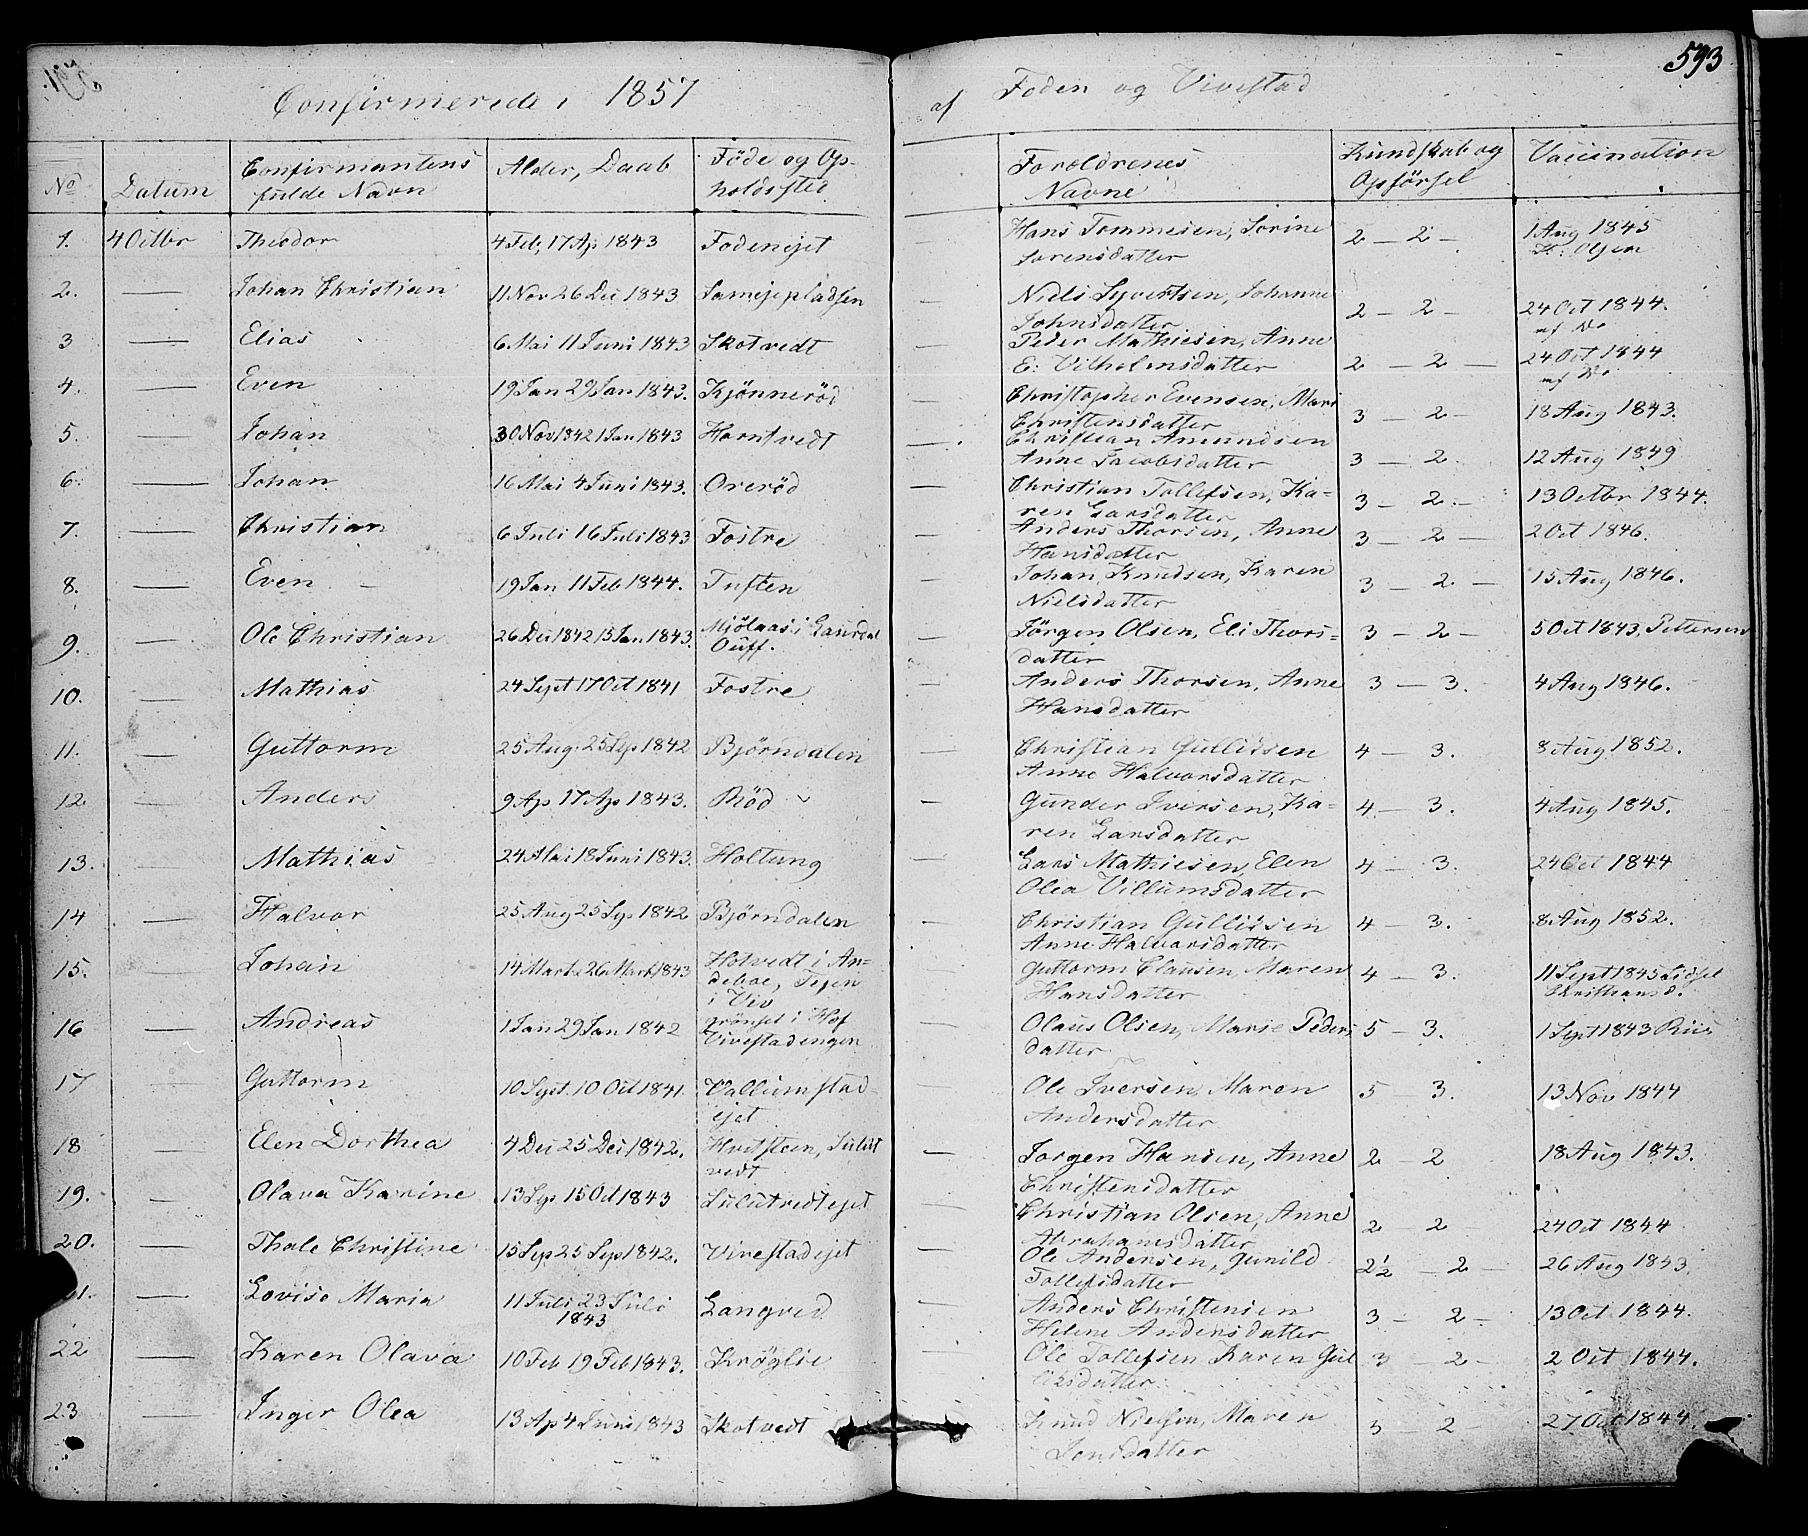 593
Confirmerede i 1857 af Foden og Vivestad
No
Datum
Confirmantens fulde Navn
Alder, Daab
Føde og Opholdssted
Forældrenes Navne
Kundskab og Opførsel
Vaccination
1. 4 Octbr Theodor 4 Feb, 17 Ap 1843 Fodenejet Hans Tommesen, Sorine 2 - 2 - 1 Aug 1845
Sorensdatter Olsen
2. — Johan Christian 11 Nov 26 Dec 1843 — Niels Syvertsen, Johanne 2 - 2 - 24 Oct 1844.
Johnsdatter af Do
3 — Elias 6 Mai 11 Juni 1843 Skotvedt Peder Mathiesen, Anne
E: Vilhelmsdatter 2 - 2 - 24 Oct 1844 af Do
4. — Even 19 Jan 29 Jan 1843. Kjønnerød — Christopher Evensen, Mari
Christensdatter 3 - 2 - 18 Aug 1843.
5. — Johan 30 Nov 1842 1 Jan 1843 Horntvedt — Christian Amundsen
Anne Jacobsdatter 3 - 2. 12 Aug 1849
6. — Johan 16 Mai 4 Juni 1843. Orerød — Christian Tollefsen, Ka=
ren Larsdatter 3 - 2. - 13 Octbr 1844.
7. — Christian 6 Juli 16 Juli 1843 Fostre — Anders Thorsen, Anne
Hansdatter 3 - 2 - 2 Oct 1846.
8. — Even 19 Jan 11 Feb 1844. Tuften — Johan Knudsen, Karen
Nielsdatter 3 - 2. - 15 Aug 1846.
9. — Ole Christian 26 Dec 1842 15 Jan 1843. Mjølaas i Laurdal — Jørgen Olsen, Eli Thors= 3 - 2 - 5 Oct 1843, Pettersen
datter
10. — Mathias 24 Sept 17 Oct 1841 Fostre — Anders Thorsen, Anne 3 - 3. 4 Aug 1846.
Hansdatter
11. — Guttorm 25 Aug. 25 Sep 1842 Bjørndalen — Christian Gullichsen 4 - 3. 8 Aug 1852.
Anne Halvorsdatter
12 — Anders 9 Ap 17 Ap 1843. Rød — Gunder Iversen, Ka= 4 - 3. 4 Aug 1845.
ren Larsdatter
13. — Mathias 24 Mai 18 Juni 1843. Holtung — Lars Mathiesen, Elen 4 - 3. 24 Oct 1844
Olea Villumsdatter
14 — Halvor 25 Aug 25 Sep 1842 Bjørndalen — Christian Gullichsen 4 - 3. 8. Aug 1852.
Anne Halvorsdatter
15. — Johan 14 Marts 26 Marts 1843 Holvedt i An=
deboe, i Viv — Guttorm Clausen, Maren 4 - 3. 11 Sept 1845
Hansdatter
16 — Andreas 1 Jan 29 Jan 1842 Grønset i Hof
Vivestadengen — Olaus Olsen, Marie Peders 5 - 3. 1 Sept 1843
datter
17 — Guttorm 10 Sept. 10 Oct 1841. Vallumstad=
ejet Ole Iversen Maren 5 - 3. 13 Nov 1844
Andersdatter
18 — Elen Dorthea 4 Dec 25 Dec 1842. Hvitsteen, — Jørgen Hansen, Anne 2 - 2 18 Aug 1843.
Christensdatter
19. — Olava Karine 13 Sep 15 Oct 1843 — Christian Olsen, Anne
Abrahamsdatter 2 - 2 - 24 Oct 1844
20. — Thale Christine 15 Sep 25 Sep 1842. Vivestadejet — Ole Andersen, Gunild
Tollefsdatter 2½ - 2 - 26 Aug 1843.
21. — Lovise Maria 11 Juli 23 Juli
1843 Langved — Anders Christensen
Helene Andersdatter 3 - 2 - 13 Oct 1844.
22 — Karen Olava 10 Feb 19 Feb 1843. Krøglie — Ole Tollefsen Karen Gul
liksdatter. 3 2 - 2 Oct 1844.
23 — Inger Olea 13 Ap 4 Juni 1843 Skotvedt — Knud Nielsen, Maren 3 - 2 27 Oct 1844.
Jensdatter